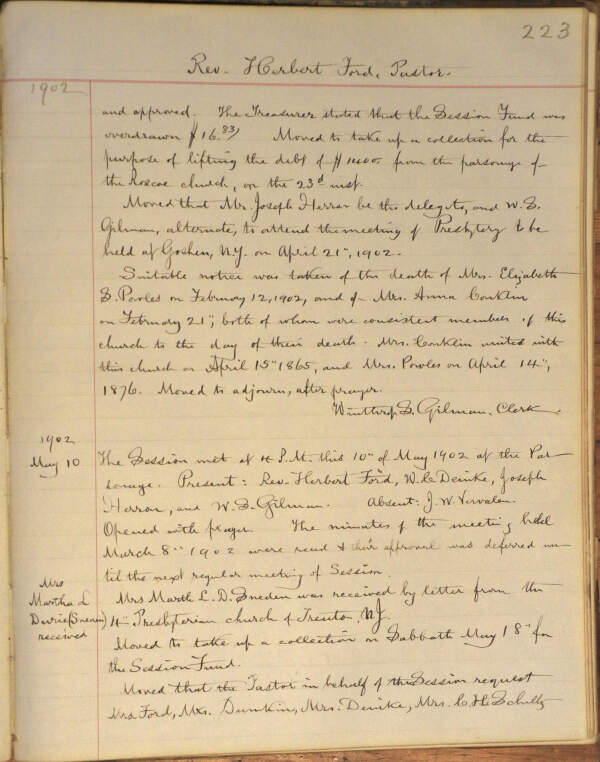 223
Rev. Herbert Ford, Pastor.
1902
and approved. The Treasurer stated that the Session Fund was
overdrawn $16.83/ Moved to take up a collection for the
purpose of lifting the debt of from the parsonge of
the Roscoe church, on the 23d inst.
Moved that Mr. Joseph Herron be the delegate, and W. S.
Gilman, alternate, to attend the meeting of Presbytery to be
held at Goshen, N.Y. on April 21", 1902.
Suitable notice was taken of the death of Mrs. Elizabeth
S. Powles on February 12, 1902, and of Mrs. Anna Conklin
on February 21", both of whom were consistent members of this
church to the day of their death. Mrs. Conklin united with
this church on April 15" 1865, and Mrs. Powles on April 14",
1876. Moved to adjourn, after prayer.
Winthrop S. Gilman, Clerk
1902
May 10
The Session met at 4 P.M. this 10" of May 1902 at the Par
sonage. Present: Rev. Herbert Ford, W. C. Deinke, Joseph
Herron, and W. S. Gilman. Absent: J. W. Vervalen.
Opened with prayer. The minutes of the meeting held
March 8" 1902 were read & their approval was deferred un-
til the next regular meeting of Session.
Mrs
Martha L
Durie (Sneden)
received
Mrs Marth L. D. Sneden was received by letter from the
4" Presbyterian church of Trenton, N.J.
Moved to take up a collection on Sabbath May 18" for
the Session Fund.
Moved that the Pastor in behalf of the Session request
Mrs Ford, Mrs. Dunkin, Mrs. Deinke, Mrs. C. H. Schultz